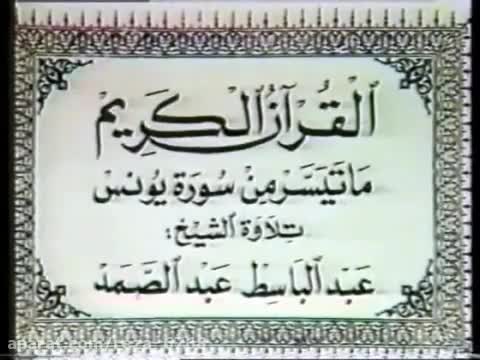 القُرآنُ الكَرِيم
مَا تَيَسَّر مِنْ سُورَة يُونس
تِلاوَة الشَيْخ:
عَبْد البَاسِط عَبْد الصَّمَد